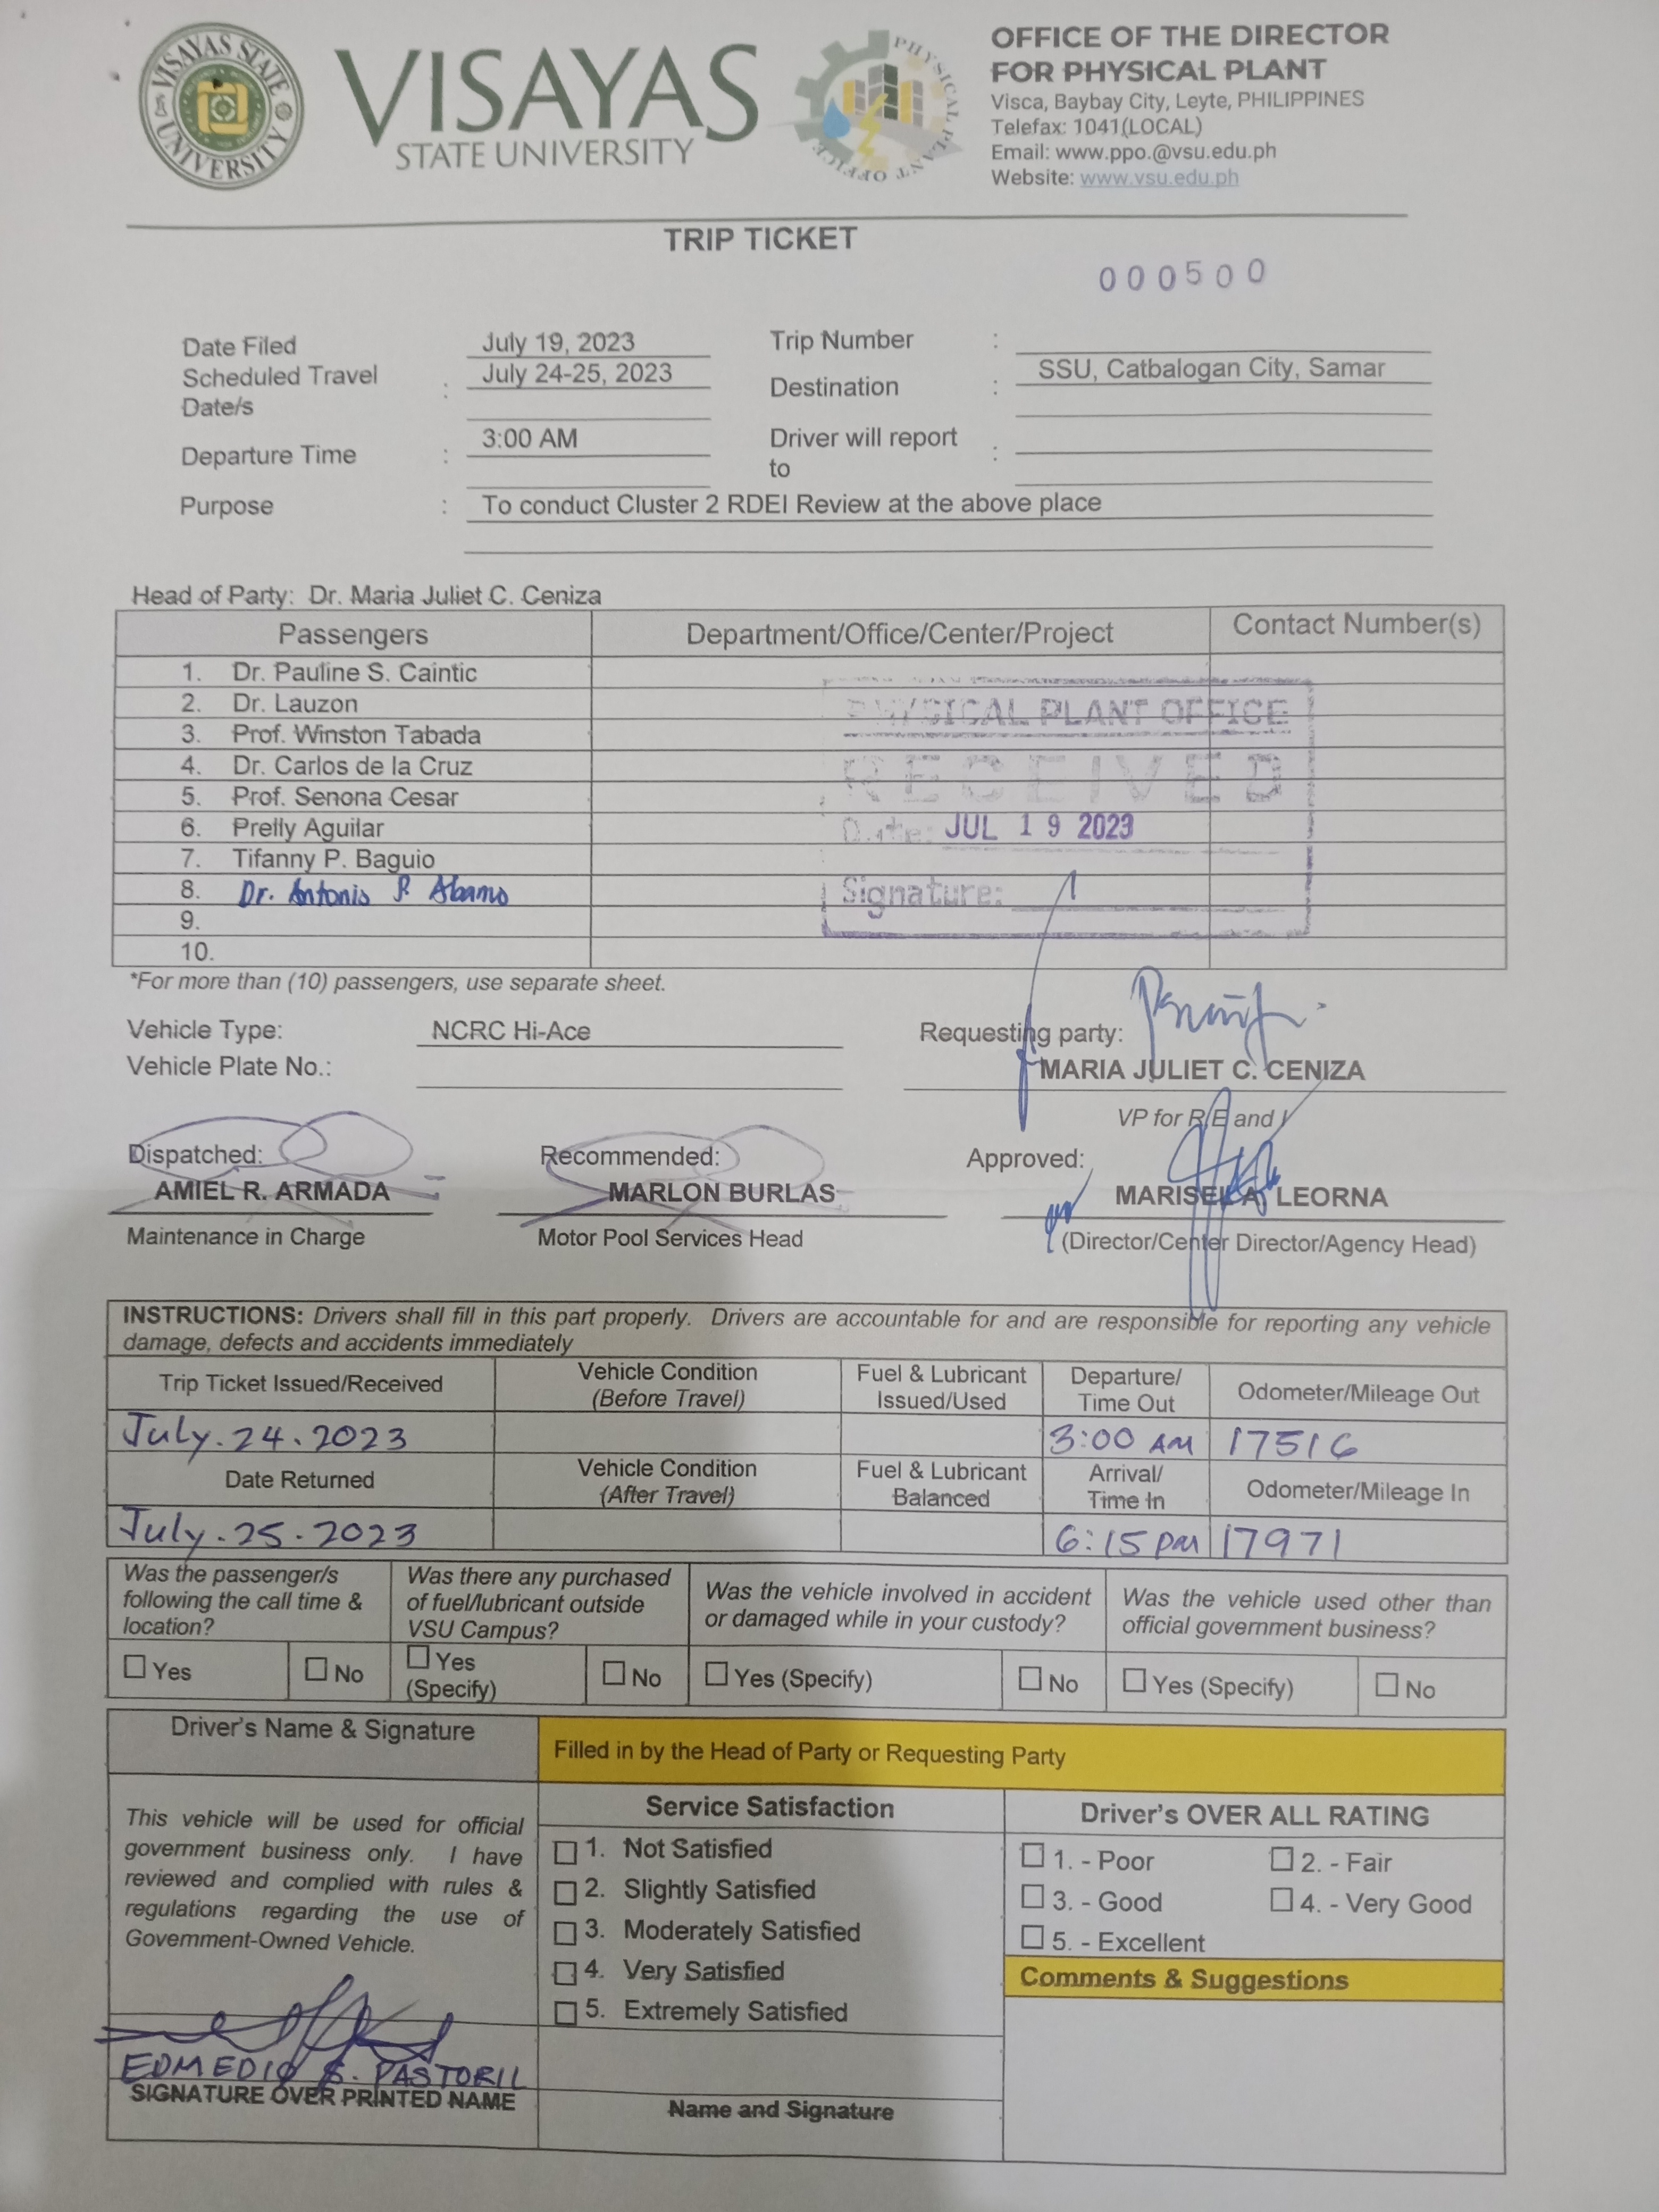 VISAYAS STATE UNIVERSITY
VISAYAS
STATE UNIVERSITY
PHYSICAL PLANT OFFICE
OFFICE OF THE DIRECTOR
FOR PHYSICAL PLANT
Visca, Baybay City, Leyte, PHILIPPINES
Telefax: 1041(LOCAL)
Email: www.ppo.@vsu.edu.ph
Website: www.vsu.edu.ph
TRIP TICKET
000500
Date Filed July 19, 2023 Trip Number :
Scheduled Travel Date/s : July 24-25, 2023 Destination : SSU, Catbalogan City, Samar
Departure Time : 3:00 AM Driver will report to :
Purpose : To conduct Cluster 2 RDEI Review at the above place
Head of Party: Dr. Maria Juliet C. Ceniza
Passengers Department/Office/Center/Project Contact Number(s)
1. Dr. Pauline S. Caintic
2. Dr. Lauzon
3. Prof. Winston Tabada
4. Dr. Carlos de la Cruz
5. Prof. Senona Cesar
6. Prelly Aguilar
7. Tifanny P. Baguio
8. Dr. Antonio P. Abamo
9.
10.
PHYSICAL PLANT OFFICE
RECEIVED
Date: JUL 19 2023
Signature:
*For more than (10) passengers, use separate sheet.
Vehicle Type: NCRC Hi-Ace
Vehicle Plate No.:
Requesting party:
MARIA JULIET C. CENIZA
VP for R,E and I
Dispatched: Recommended: Approved:
AMIEL R. ARMADA MARLON BURLAS MARISEL A. LEORNA
Maintenance in Charge Motor Pool Services Head (Director/Center Director/Agency Head)
INSTRUCTIONS: Drivers shall fill in this part properly. Drivers are accountable for and are responsible for reporting any vehicle
damage, defects and accidents immediately
Trip Ticket Issued/Received Vehicle Condition (Before Travel) Fuel & Lubricant Issued/Used Departure/ Time Out Odometer/Mileage Out
July.24.2023 3:00 AM 17516
Date Returned Vehicle Condition (After Travel) Fuel & Lubricant Balanced Arrival/ Time In Odometer/Mileage In
July.25.2023 6:15 pm 17971
Was the passenger/s following the call time & location?
Yes No
Was there any purchased of fuel/lubricant outside VSU Campus?
Yes (Specify) No
Was the vehicle involved in accident or damaged while in your custody?
Yes (Specify) No
Was the vehicle used other than official government business?
Yes (Specify) No
Driver's Name & Signature
Filled in by the Head of Party or Requesting Party
This vehicle will be used for official
government business only. I have
reviewed and complied with rules &
regulations regarding the use of
Government-Owned Vehicle.
EDMEDIO S. PASTORIL
SIGNATURE OVER PRINTED NAME
Service Satisfaction
1. Not Satisfied
2. Slightly Satisfied
3. Moderately Satisfied
4. Very Satisfied
5. Extremely Satisfied
Name and Signature
Driver's OVER ALL RATING
1. - Poor 2. - Fair
3. - Good 4. - Very Good
5. - Excellent
Comments & Suggestions